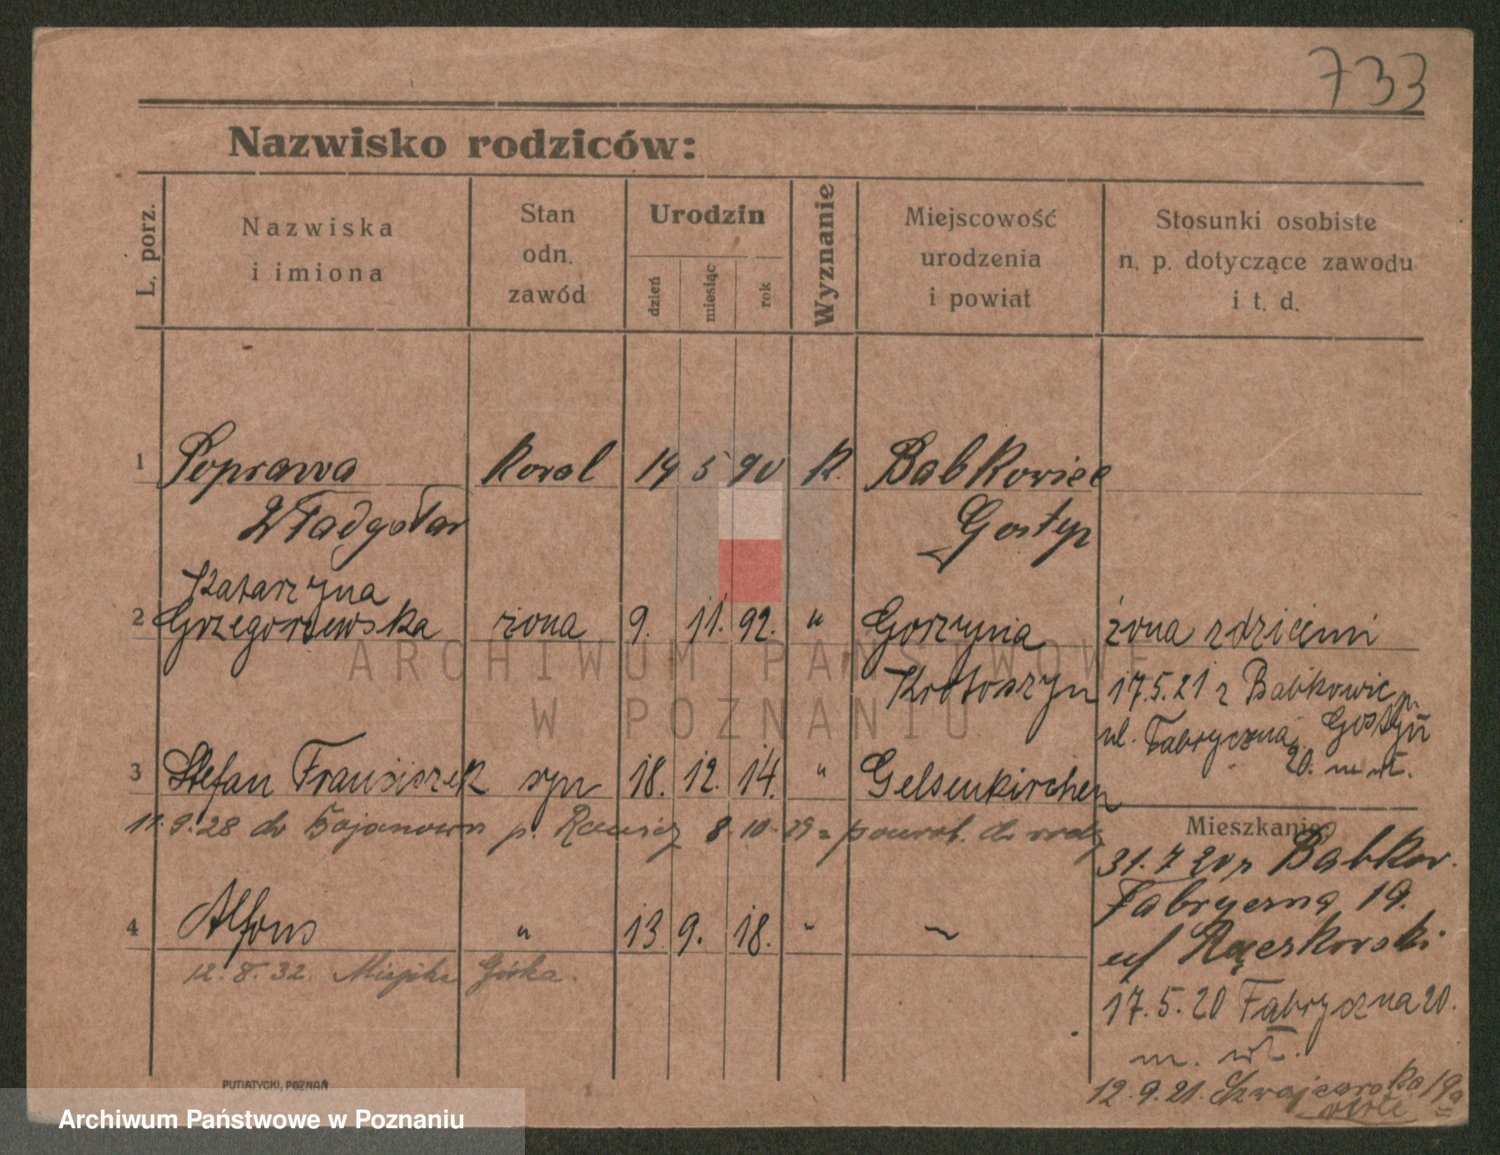 733
Nazwisko rodziców:
L. porz.
Nazwiska
i imiona
Stan
odn.
zawód
Urodzin
dzień
miesiąc
rok
Wyznanie
Miejscowość
urodzenia
i powiat
Stosunki osobiste
n. p. dotyczące zawodu
i t. d.
1 Poprawa 14 5 90 K.
Gostyp
Katarzyna
2 Grzegorzewska żona 9. 11. 92. " Gorzynia żona z dziećmi
Krotoszyn 17.5.21 z Babkowic p.
ul. Fabryczna Gostyń
20. m. wł.
3 Stefan Franciszek syn 18. 12. 14. " Gelsenkirchen
11.9.28 do Bojanowa p. Rawicz 8.10.29 z powrot. do rodz
Mieszkanie:
31.7.20 z Babkow.
Fabryczna 19.
4 Alfons " 13. 9. 18. "
uf Raczkowski
12.8.32. Miejska Górka.
17.5.20 Fabryczna 20.
m. wł.
12.9.21. Szwajcarska 19a
PUTIATYCKI, POZNAŃ
ARCHIWUM PAŃSTWOWE
W POZNANIU
Archiwum Państwowe w Poznaniu